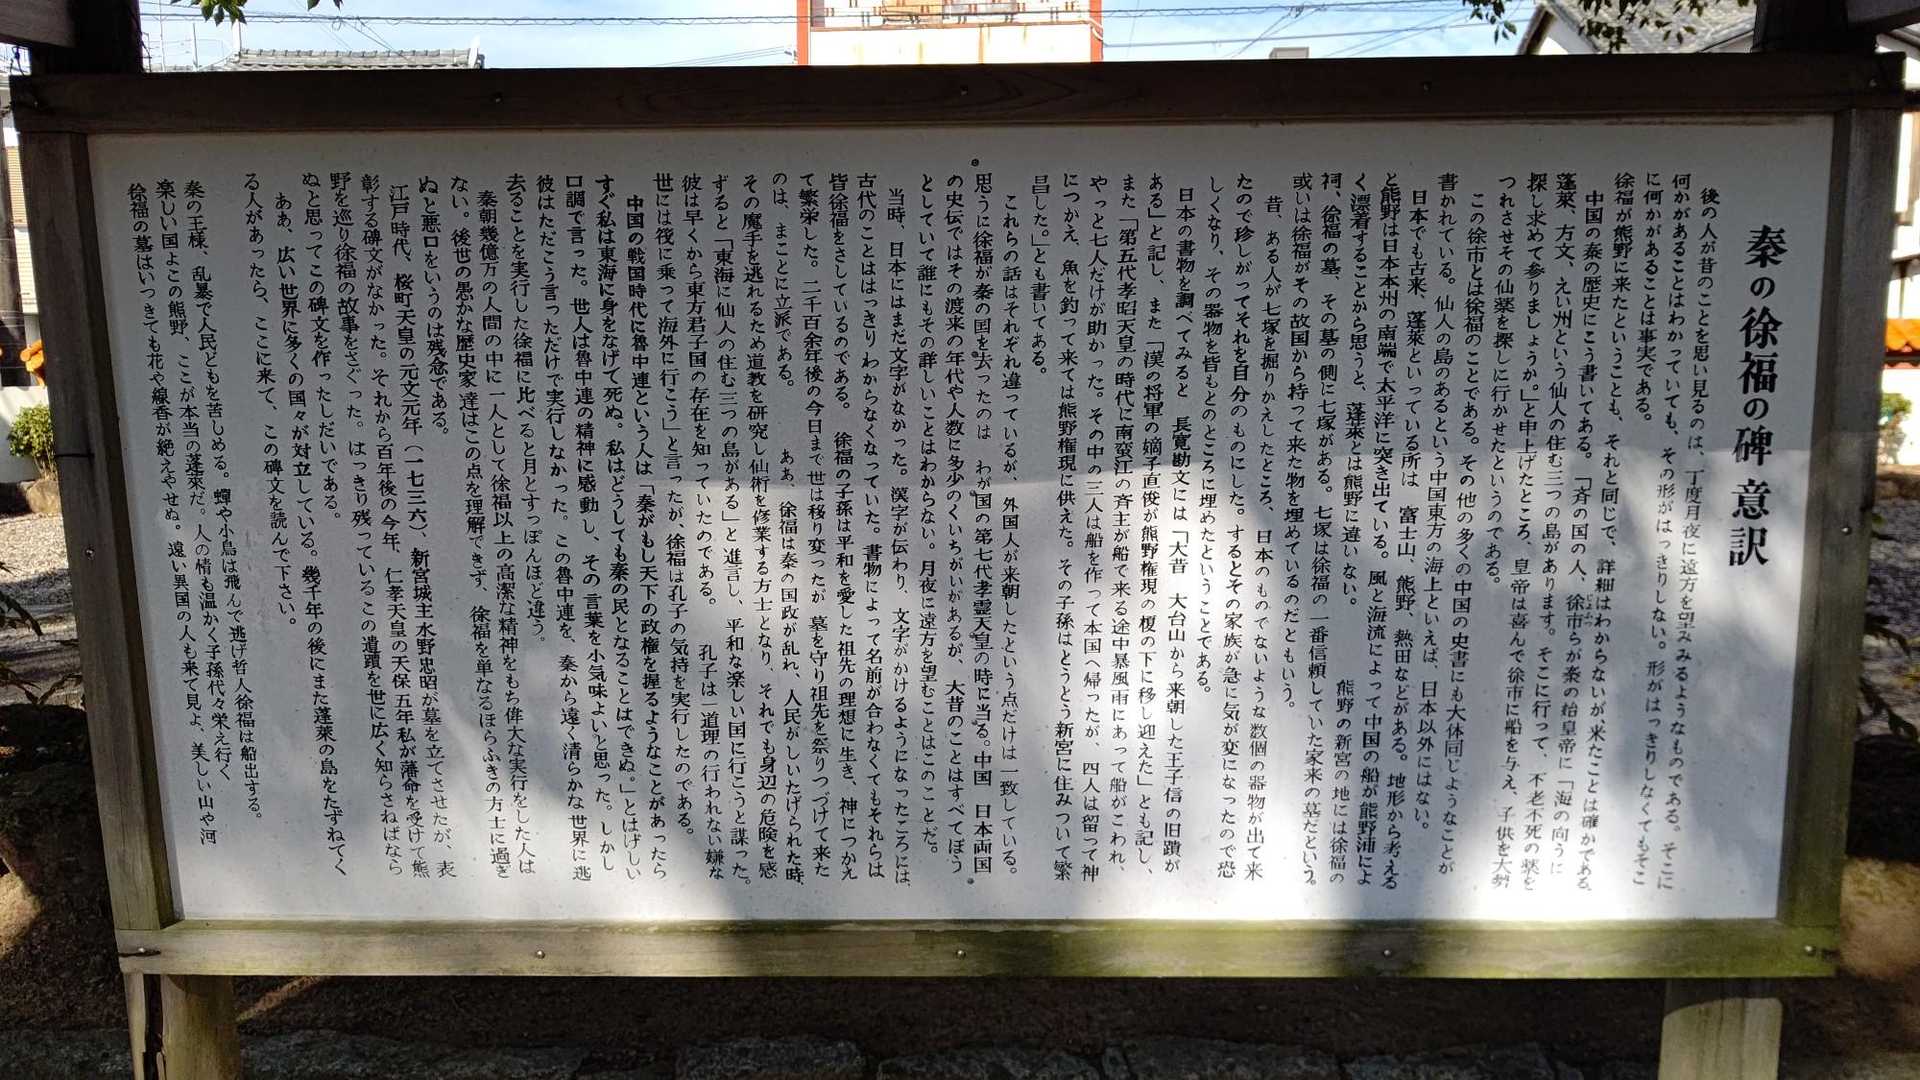 秦の徐福の碑 意訳
後の人が昔のことを思い見るのは、丁度月夜に遠方を望みみるようなものである。そこに
何かがあることはわかっていても、その形がはっきりしない。形がはっきりしなくてもそこ
に何かがあることは事実である。
徐福が熊野に来たということも、それと同じで、詳細はわからないが来たことは確かである。
中国の秦の歴史にこう書いてある。「斉の国の人、徐市らが秦の始皇帝に「海の向うに
蓬萊、方丈、えい州という仙人の住む三つの島があります。そこに行って、不老不死の薬を
探し求めて参りましょうか。」と申上げたところ、皇帝は喜んで徐市に船を与え、子供を大勢
つれさせその仙薬を探しに行かせたというのである。
この徐市とは徐福のことである。その他の多くの中国の史書にも大体同じようなことが
書かれている。仙人の島のあるという中国東方の海上といえば、日本以外にはない。
日本でも古来、蓬萊といっている所は 富士山、熊野、熱田などがある。地形から考える
と熊野は日本本州の南端で太平洋に突き出ている。風と海流によって中国の船が熊野浦によ
く漂着することから思うと、蓬萊とは熊野に違いない。 熊野の新宮の地には徐福の
祠、徐福の墓、その墓の側に七塚がある。七塚は徐福の一番信頼していた家来の墓だという。
或いは徐福がその故国から持って来た物を埋めているのだともいう。
昔、ある人が七塚を掘りかえしたところ、日本のものでないような数個の器物が出て来
たので珍しがってそれを自分のものにした。するとその家族が急に気が変になったので恐
しくなり、その器物を皆もとのところに埋めたということである。
日本の書物を調べてみると 長寛勘文には「大昔 大台山から来朝した王子信の旧蹟が
ある」と記し、また「漢の将軍の嫡子直俊が熊野権現の榎の下に移し迎えた」とも記し、
また「第五代孝昭天皇の時代に南蛮江の斉主が船で来る途中暴風雨にあって船がこわれ、
やっと七人だけが助かった。その中の三人は船を作って本国へ帰ったが、四人は留って神
につかえ、魚を釣って来ては熊野権現に供えた。その子孫はとうとう新宮に住みついて繁
昌した。」とも書いてある。
これらの話はそれぞれ違っているが、外国人が来朝したという点だけは一致している。
思うに徐福が秦の国を去ったのは わが国の第七代孝霊天皇の時に当る。中国 日本両国
の史伝ではその渡来の年代や人数に多少のくいちがいがあるが、大昔のことはすべてぼう
としていて誰にもその詳しいことはわからない。月夜に遠方を望むことはこのことだ。
当時、日本にはまだ文字がなかった。漢字が伝わり、文字がかけるようになったころには、
古代のことははっきりわからなくなっていた。書物によって名前が合わなくてもそれらは
皆徐福をさしているのである。 徐福の子孫は平和を愛した祖先の理想に生き、神につかえ
て繁栄した。二千百余年後の今日まで世は移り変ったが 墓を守り祖先を祭りつづけて来た
のは、まことに立派である。 ああ、徐福は秦の国政が乱れ、人民がしいたげられた時、
その魔手を逃れるため道教を研究し仙術を修業する方士となり、それでも身辺の危険を感
ずると「東海に仙人の住む三つの島がある」と進言し、平和な楽しい国に行こうと謀った。
彼は早くから東方君子国の存在を知っていたのである。 孔子は「道理の行われない嫌な
世には筏に乗って海外に行こう」と言ったが、徐福は孔子の気持を実行したのである。
中国の戦国時代に魯中連という人は「秦がもし天下の政権を握るようなことがあったら
すぐ私は東海に身をなげて死ぬ。私はどうしても秦の民となることはできぬ。」とはげしい
口調で言った。世人は魯中連の精神に感動し、その言葉を小気味よいと思った。しかし
彼はただこう言っただけで実行しなかった。この魯中連を、秦から遠く清らかな世界に逃
去ることを実行した徐福に比べると月とすっぽんほど違う。
秦朝幾億万の人間の中に一人として徐福以上の高潔な精神をもち偉大な実行をした人は
ない。後世の愚かな歴史家達はこの点を理解できず、徐福を単なるほらふきの方士に過ぎ
ぬと悪口をいうのは残念である。
江戸時代、桜町天皇の元文元年(一七三六)、新宮城主水野忠昭が墓を立てさせたが、表
彰する碑文がなかった。それから百年後の今年、仁孝天皇の天保五年私が藩命を受けて熊
野を巡り徐福の故事をさぐった。はっきり残っているこの遺蹟を世に広く知らさねばなら
ぬと思ってこの碑文を作ったしだいである。
ああ、広い世界に多くの国々が対立している。幾千年の後にまた蓬萊の島をたずねてく
る人があったら、ここに来て、この碑文を読んで下さい。
秦の王様、乱暴で人民どもを苦しめる。蟬や小鳥は飛んで逃げ哲人徐福は船出する。
楽しい国よこの熊野、ここが本当の蓬萊だ。人の情も温かく子孫代々栄え行く
徐福の墓はいつきても花や線香が絶えやせぬ。遠い異国の人も来て見よ、美しい山や河